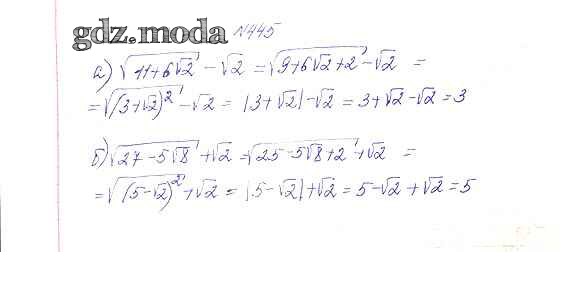 gdz.moda №445
а) √(11+6√2) - √2 = √(9+6√2+2) - √2 =
= √((3+√2)²) - √2 = |3+√2| - √2 = 3+√2-√2 = 3
б) √(27-5√8) + √2 = √(25-5√8+2) + √2 =
= √((5-√2)²) + √2 = |5-√2| + √2 = 5-√2+√2 = 5